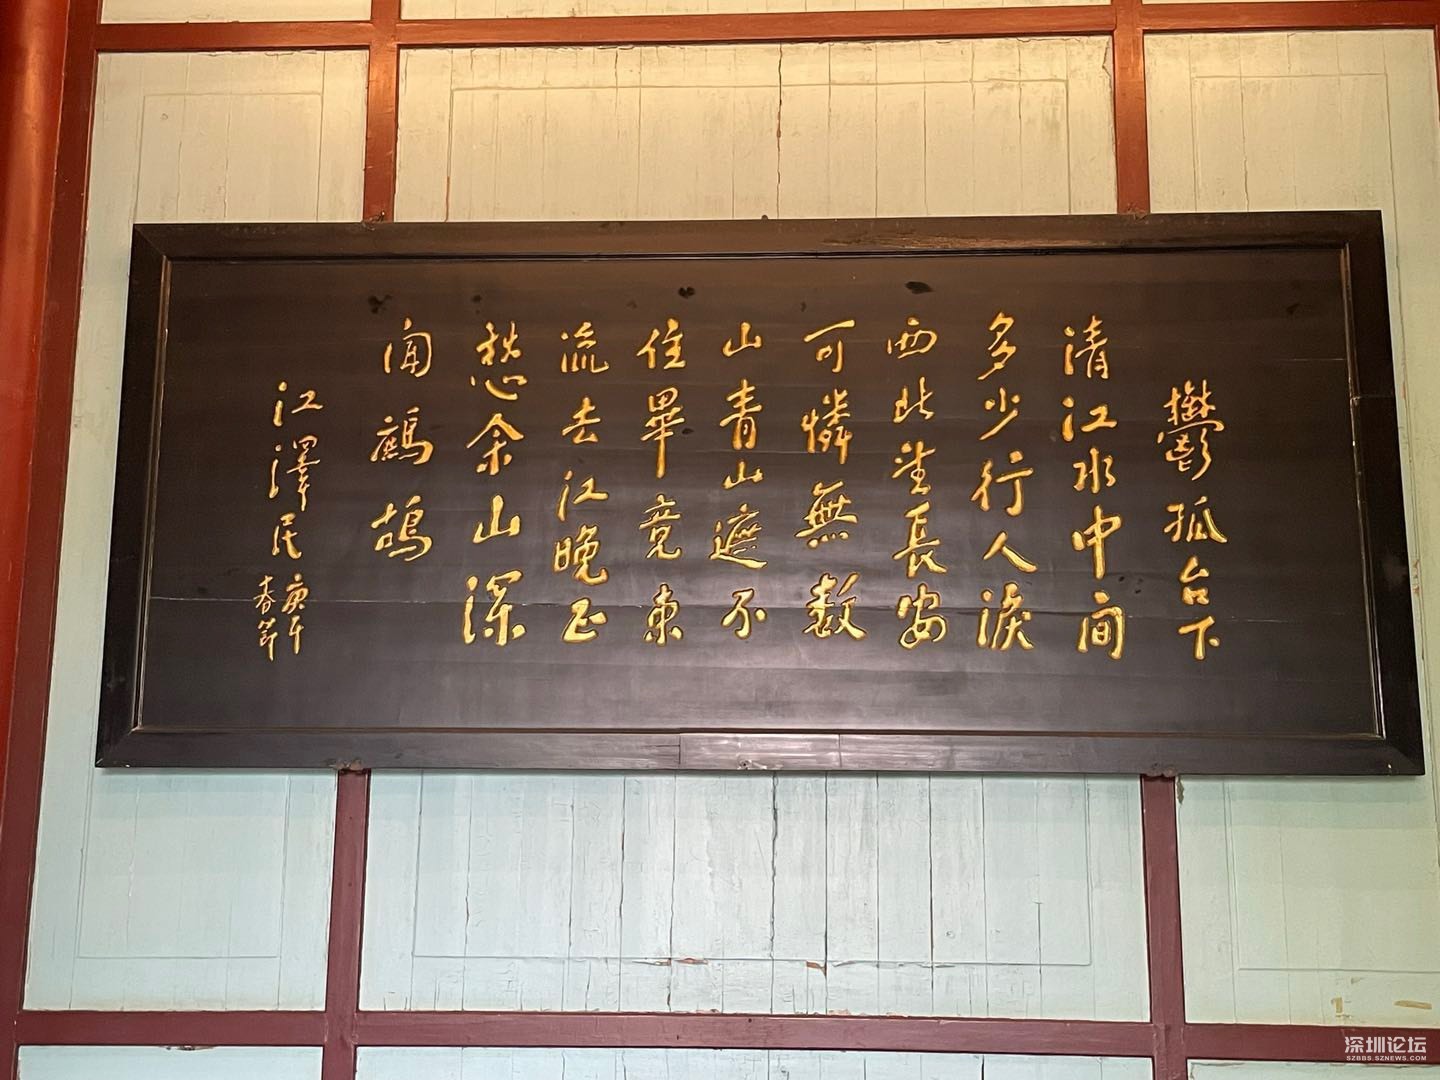 鬱孤台下
清江水中间
多少行人淚
西北望長安
可憐無數
山青山遮不
住畢竟東
流去江晚正
愁余山深
闻鹧鸪
江澤民
庚午
春節
深圳论坛
SZBBS.SZNEWS.COM